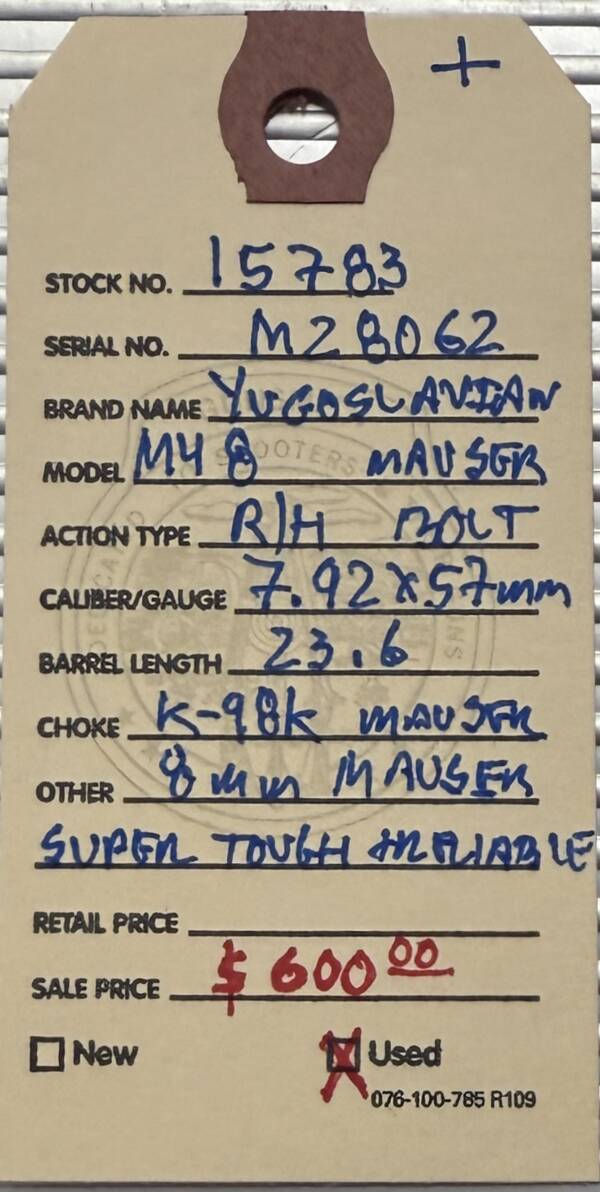 +
STOCK NO. 15783
SERIAL NO. M28062
BRAND NAME YUGOSLAVIAN
MODEL M48 MAUSER
ACTION TYPE R/H BOLT
CALIBER/GAUGE 7.92x57mm
BARREL LENGTH 23.6
CHOKE K-98k MAUSER
OTHER 8mm MAUSER
SUPER TOUGH
RETAIL PRICE
SALE PRICE $600.00
New Used
076-100-765 R109